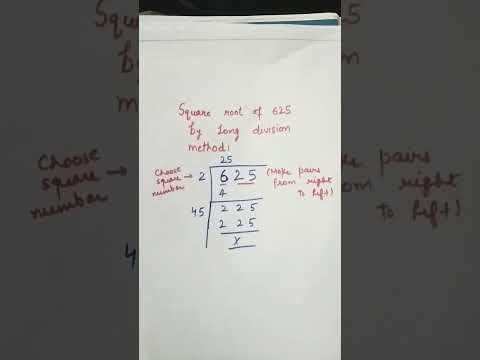 Square root of 625
by Long division
method:
25
Choose
square → 2
number
6 2 5
(Make pairs
from right
to left)
4
45
2 2 5
2 2 5
x